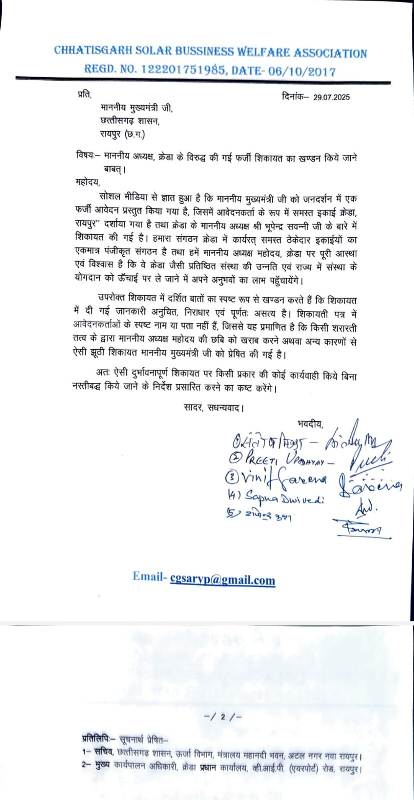 CHHATISGARH SOLAR BUSSINESS WELFARE ASSOCIATION
REGD. NO. 122201751985, DATE- 06/10/2017
प्रति, दिनांक– 29.07.2025
माननीय मुख्यमंत्री जी,
छत्तीसगढ़ शासन,
रायपुर (छ.ग.)
विषयः– माननीय अध्यक्ष, क्रेडा के विरुद्ध की गई फर्जी शिकायत का खण्डन किये जाने
बाबत्।
महोदय,
सोशल मीडिया से ज्ञात हुआ है कि माननीय मुख्यमंत्री जी को जनदर्शन में एक
फर्जी आवेदन प्रस्तुत किया गया है, जिसमें आवेदनकर्ता के रूप में समस्त इकाई क्रेडा,
रायपुर" दर्शाया गया है तथा क्रेडा के माननीय अध्यक्ष श्री भूपेन्द्र सवन्नी जी के बारे में
शिकायत की गई है। हमारा संगठन क्रेडा में कार्यरत् समस्त ठेकेदार इकाईयों का
एकमात्र पंजीकृत संगठन है तथा हमें माननीय अध्यक्ष महोदय, क्रेडा पर पूरी आस्था
एवं विश्वास है कि वे क्रेडा जैसी प्रतिष्ठित संस्था की उन्नति एवं राज्य में संस्था के
योगदान को ऊँचाई पर ले जाने में अपने अनुभवों का लाभ पहुंचायेंगे।
उपरोक्त शिकायत में दर्शित बातों का स्पष्ट रूप से खण्डन करते हैं कि शिकायत
में दी गई जानकारी अनुचित, निराधार एवं पूर्णतः असत्य है। शिकायती पत्र में
आवेदनकर्ताओं के स्पष्ट नाम या पता नहीं हैं, जिससे यह प्रमाणित है कि किसी शरारती
तत्व के द्वारा माननीय अध्यक्ष महोदय की छबि को खराब करने अथवा अन्य कारणों से
ऐसी झूठी शिकायत माननीय मुख्यमंत्री जी को प्रेषित की गई है।
अतः ऐसी दुर्भावनापूर्ण शिकायत पर किसी प्रकार की कोई कार्यवाही किये बिना
नस्तीबद्ध किये जाने के निर्देश प्रसारित करने का कष्ट करेंगे।
सादर, सधन्यवाद।
भवदीय,
② PREETI UPADHYAY –
③ Vinit Saxena Saxena
(4) Sapna Dwivedi
Email- cgsaryp@gmail.com
-/ 2 /-
प्रतिलिपिः– सूचनार्थ प्रेषित–
1– सचिव, छत्तीसगढ़ शासन, ऊर्जा विभाग, मंत्रालय महानदी भवन, अटल नगर नवा रायपुर।
2– मुख्य कार्यपालन अधिकारी, क्रेडा प्रधान कार्यालय, व्ही.आई.पी. (एयरपोर्ट) रोड, रायपुर।